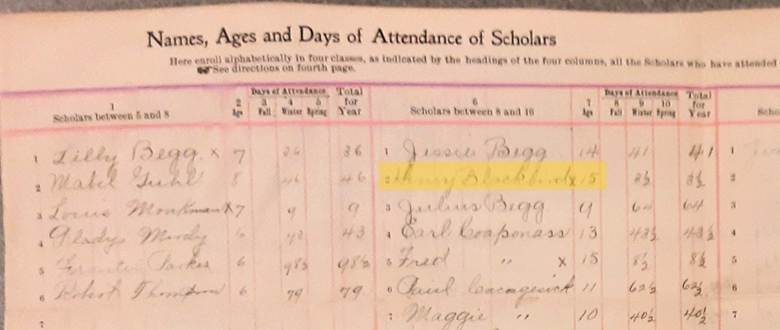 Names, Ages and Days of Attendance of Scholars
Here enroll alphabetically in four classes, as indicated by the headings of the four columns, all the Scholars who have attended
See directions on fourth page.
1 Scholars between 5 and 8
2 Age
Days of Attendance
3 Fall 4 Winter 5 Spring
Total for Year
6 Scholars between 8 and 16
7 Age
Days of Attendance
8 Fall 9 Winter 10 Spring
Total for Year
1 Lilly Begg x 7 36 36
2 Mabel 8 46 46
3 Louis Monkman x 7 9 9
4 Gladys Mindy 6 43 43
5 Parker 6 98½ 98½
6 Robert Thompson 6 79 79
7
1 Jessie Begg 14 41 41
2 Henry Blackbird x 15 8½ 8½
3 Julius Begg 9 64 64
4 Earl Coaponass 13 43½ 43½
5 Fred " x 15 8½ 8½
6 Paul Cacagesick 11 62½ 62½
7 Maggie " 10 40½ 40½
1
2
3
4
5
6
7